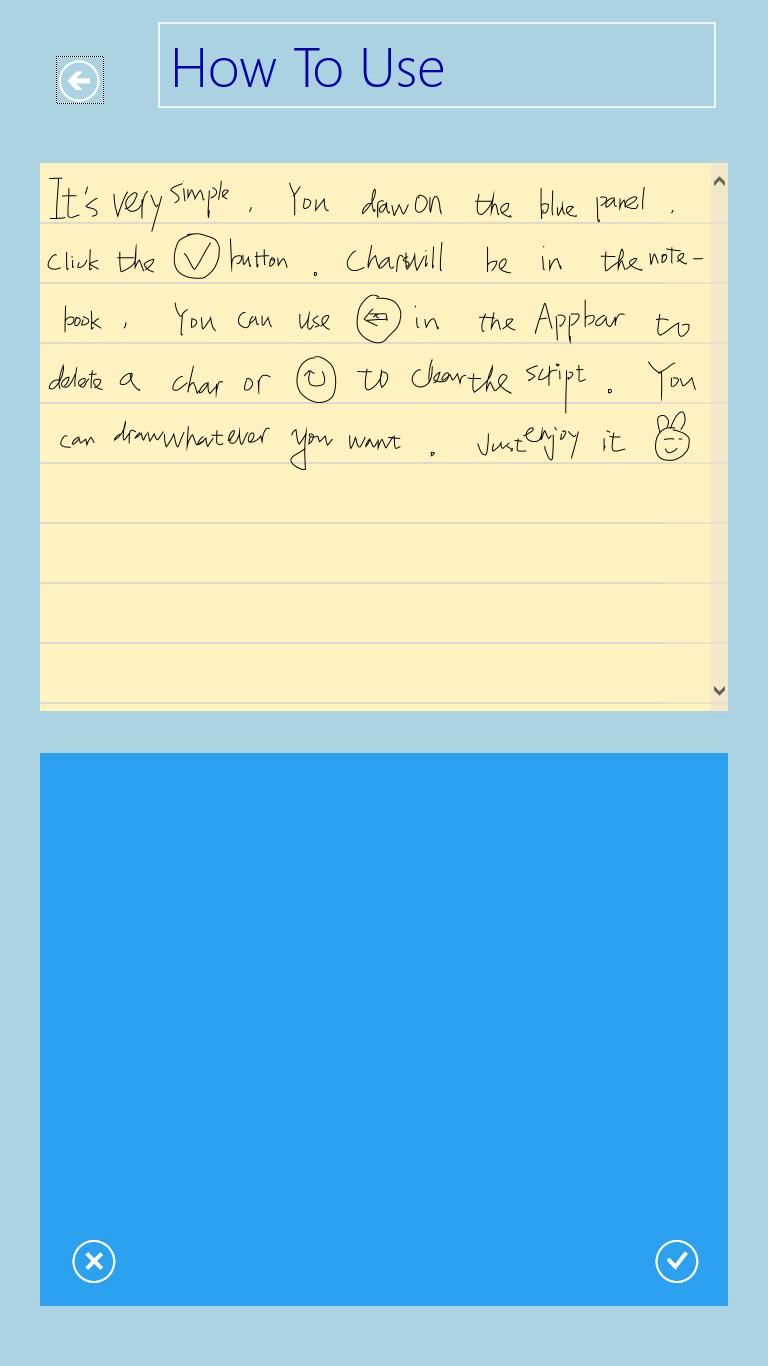 How To Use
It's very simple. You draw on the blue panel.
click the ✓ button. Chars will be in the note-
book. You can use ⇦ in the Appbar to
delete a char or ↻ to clear the script. You
can draw whatever you want. Just enjoy it